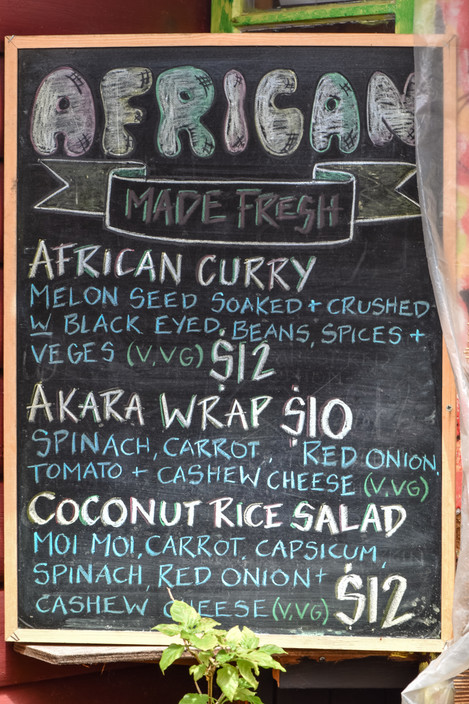 AFRICAN
MADE FRESH
AFRICAN CURRY
MELON SEED SOAKED + CRUSHED
W BLACK EYED, BEANS, SPICES +
VEGES (V,VG) $12
AKARA WRAP $10
SPINACH, CARROT, RED ONION,
TOMATO + CASHEW CHEESE (V,VG)
COCONUT RICE SALAD
MOI MOI, CARROT, CAPSICUM,
SPINACH, RED ONION +
CASHEW CHEESE (V,VG) $12